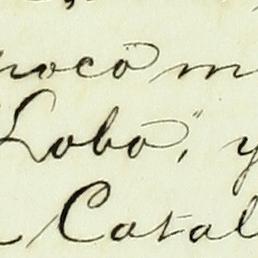 poco m
Lobo", y
Catal